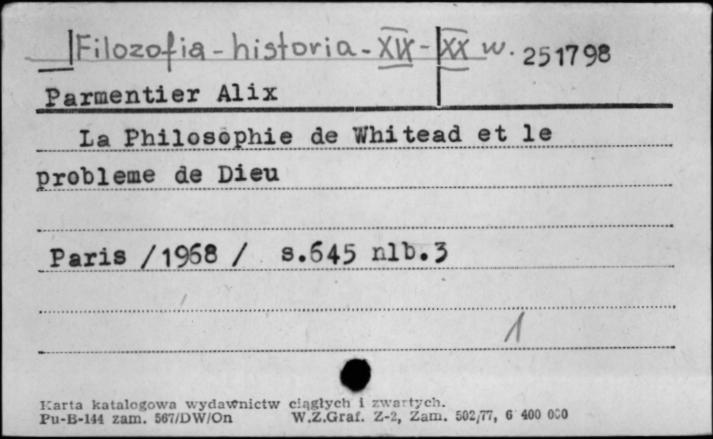 Filozofia - historia - XIX - XX w. 251798
Parmentier Alix
La Philosophie de Whitead et le
probleme de Dieu
Paris /1968 / s.645 nlb.3
1
Karta katalogowa wydawnictw ciągłych i zwartych.
Pu-B-144 zam. 567/DW/On W.Z.Graf. Z-2, Zam. 502/77, 6 400 000